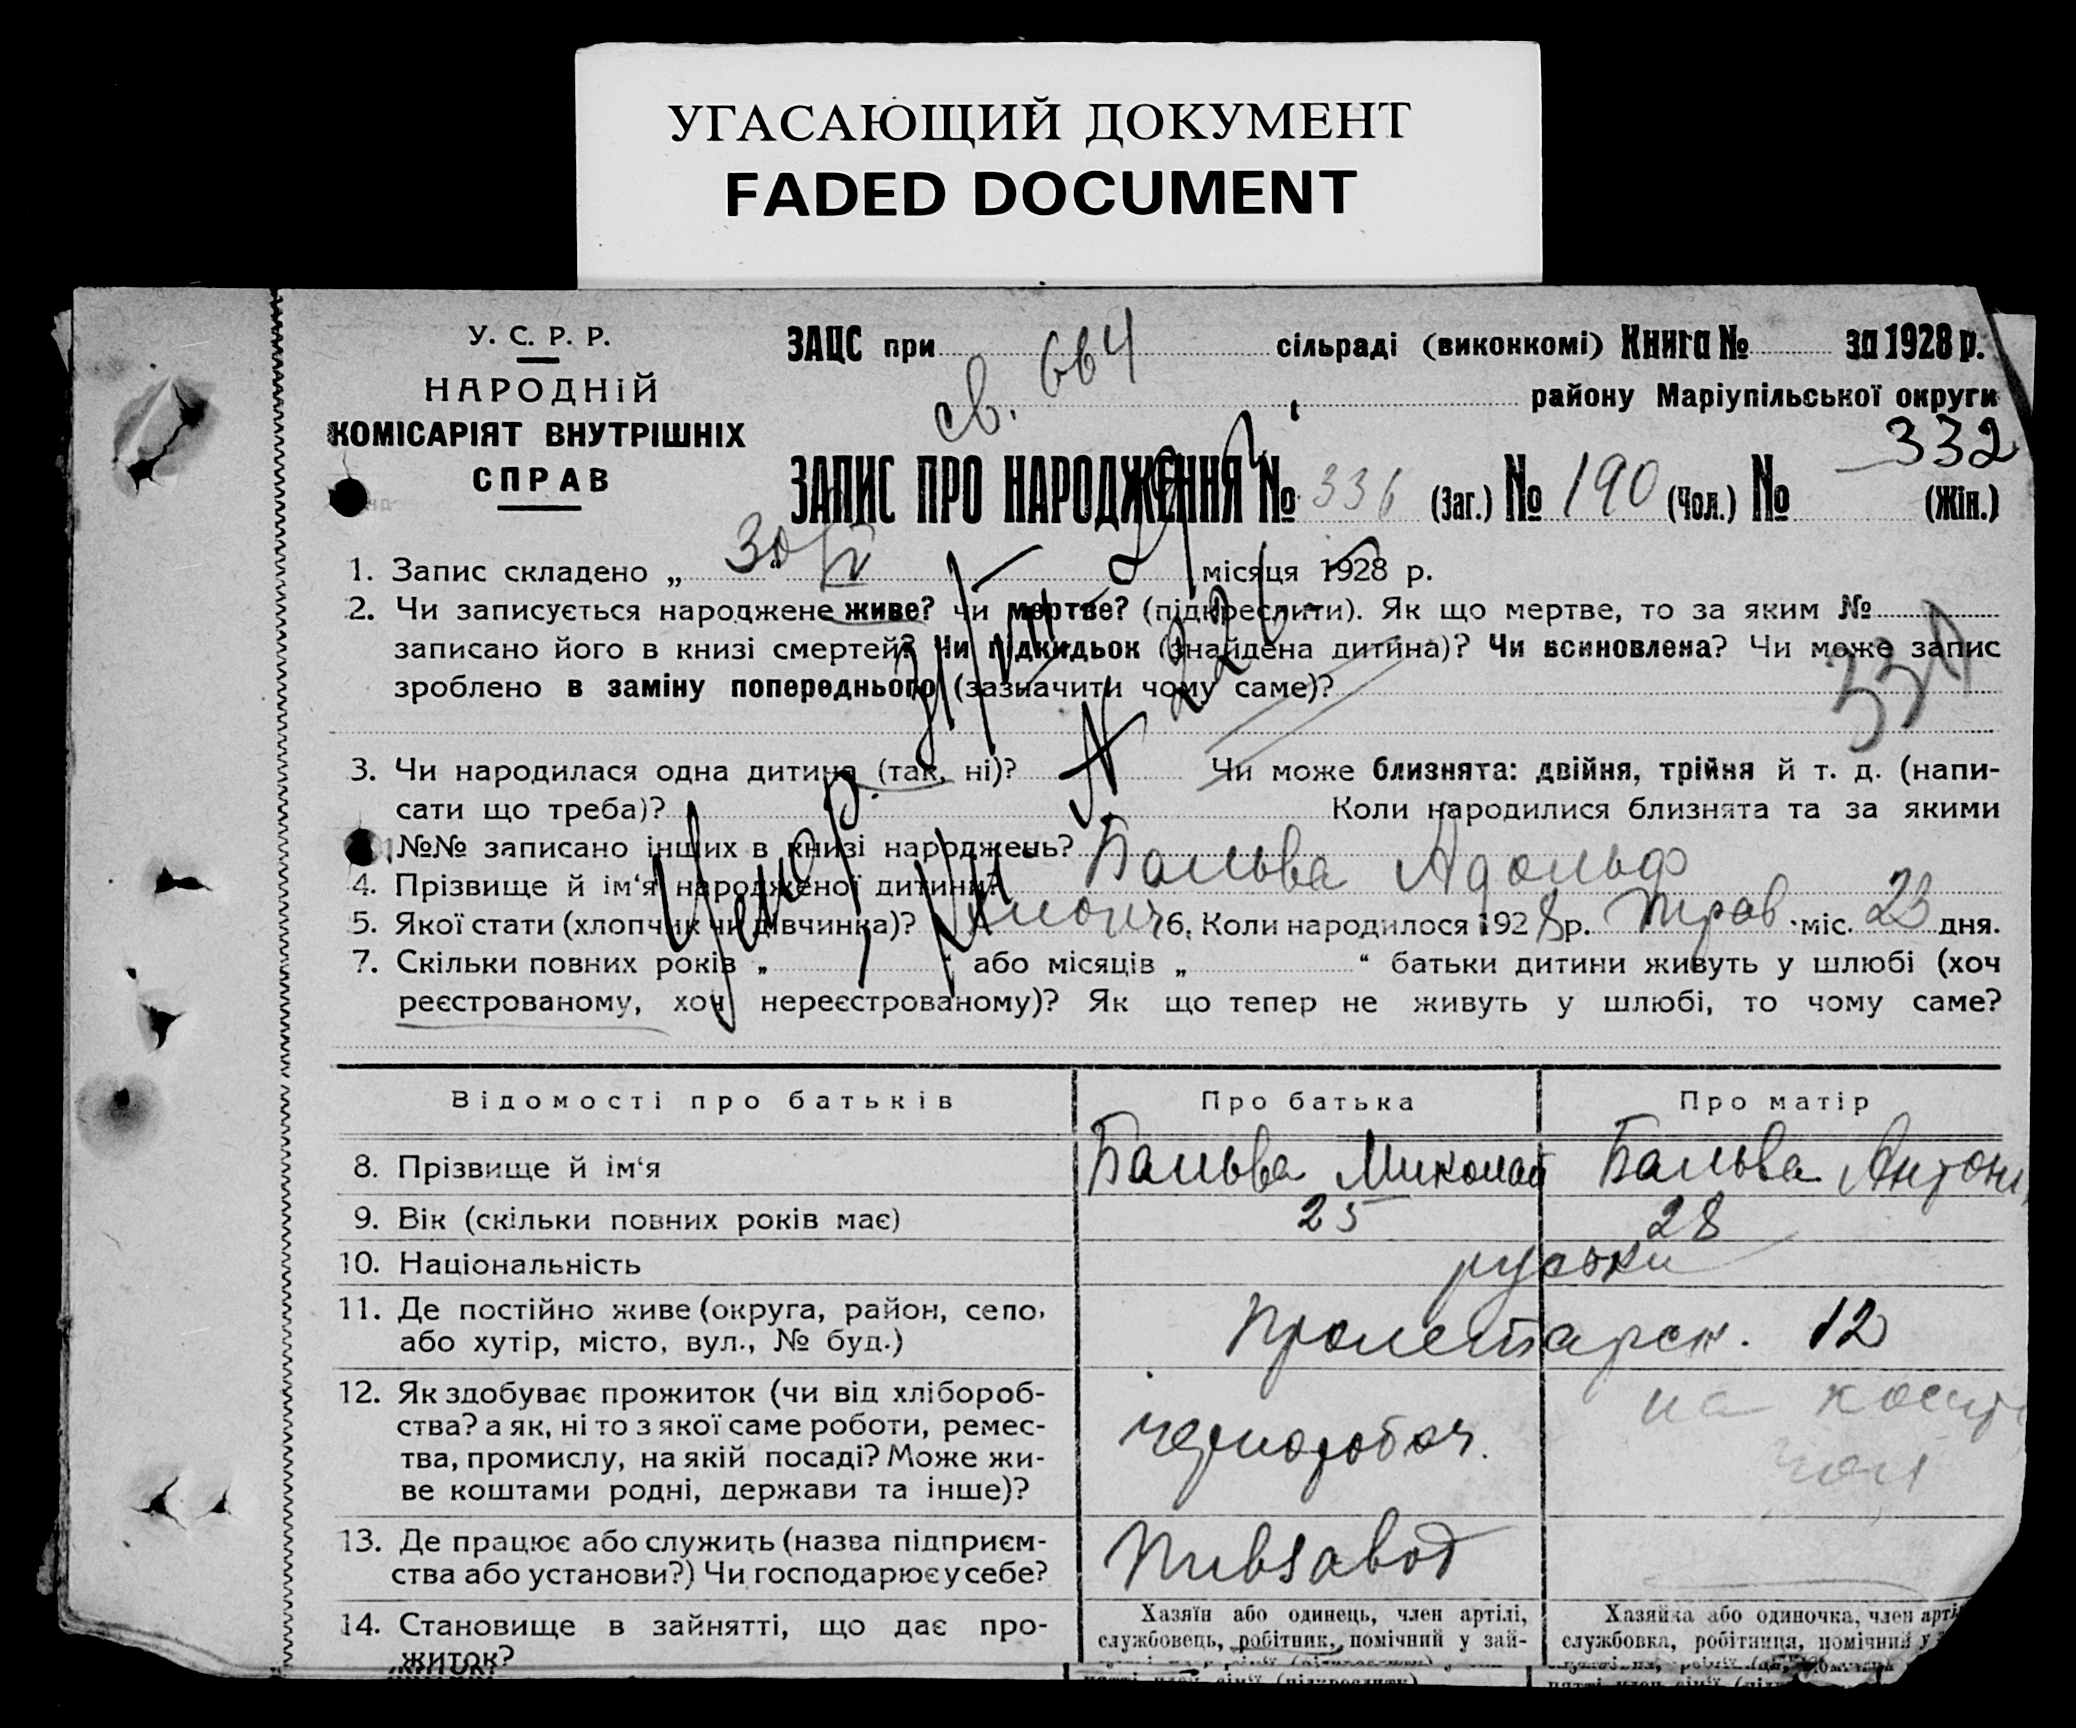 УГАСАЮЩИЙ ДОКУМЕНТ
FADED DOCUMENT
У. С. Р. Р.
НАРОДНІЙ
КОМІСАРІЯТ ВНУТРІШНІХ
СПРАВ
ЗАЦС при св. 664 сільраді (виконкомі) Книга № за 1928 р.
району Маріупільської округи
332
ЗАПИС ПРО НАРОДЖЕННЯ № 336 (Заг.) № 190 (Чол.) № (Жін.)
1. Запис складено „ 30/V “ місяця 1928 р.
2. Чи записується народжене живе? чи мертве? (підкреслити). Як що мертве, то за яким №
записано його в книзі смертей? Чи підкидьок (знайдена дитина)? Чи всиновлена? Чи може запис
зроблено в заміну попереднього (зазначити чому саме)?
Умер, 31/VII 28 г. ЗА № 226.
3. Чи народилася одна дитина (так, ні)? Чи може близнята: двійня, трійня й т. д. (напи-
сати що треба)? Коли народилися близнята та за якими
№№ записано інших в книзі народжень?
4. Прізвище й ім‘я народженої дитини? Бальва Адольф
5. Якої стати (хлопчик чи дівчинка)? хлопч 6. Коли народилося 1928 р. трав. міс. 23 дня.
7. Скільки повних років „ “ або місяців „ “ батьки дитини живуть у шлюбі (хоч
реєстрованому, хоч нереєстрованому)? Як що тепер не живуть у шлюбі, то чому саме?
Відомості про батьків Про батька Про матір
8. Прізвище й ім‘я Бальва Миколай Бальва Антон
9. Вік (скільки повних років має) 25 28
10. Національність руськи
11. Де постійно живе (округа, район, село,
або хутір, місто, вул., № буд.) Пролетарск. 12
12. Як здобуває прожиток (чи від хлібороб-
ства? а як, ні то з якої саме роботи, ремес-
тва, промислу, на якій посаді? Може жи-
ве коштами родні, держави та інше)? чернороб
на кошт
чол
13. Де працює або служить (назва підприєм-
ства або установи?) Чи господарює у себе? Пивзавод
14. Становище в зайнятті, що дає про-
житок?
Хазяїн або одинець, член артілі,
службовець, робітник, помічний у зай-
Хазяйка або одиночка, член арті
службовка, робітниця, помічний у